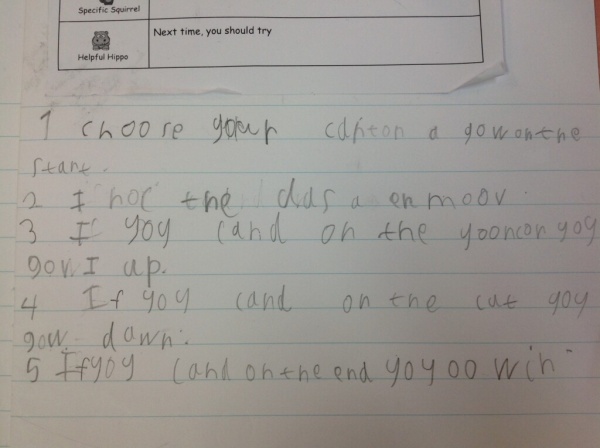 Specific Squirrel
Next time, you should try
Helpful Hippo
1 choose your cdnton a gow on the
start.
2 I hol the das a en moov.
3 If yoy land on the yooncon yoy
gow I up.
4 If yoy land on the cat yoy
gow dawn.
5 If yoy land on the end yoy oo win